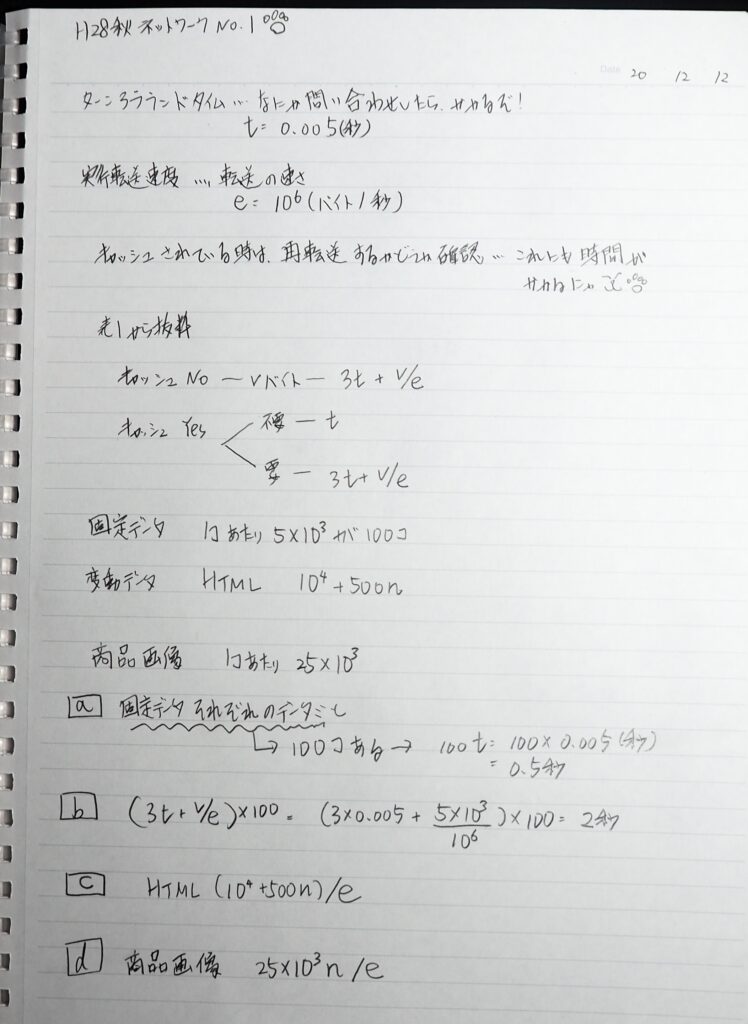 H28秋 ネットワーク No.1
Date 20 12 12
ターンラウンドタイム… なにか問い合わせしたら、かかるぞ!
t = 0.005(秒)
実行転送速度 … 転送の速さ
e = 10⁶(バイト/秒)
キャッシュされている時は、再転送するかどうか確認… これにも時間が
かかるにゃ
表1から抜粋
キャッシュ No — vバイト — 3t + v/e
キャッシュ Yes 不要 — t
要 — 3t + v/e
固定データ 1コあたり 5×10³ が 100コ
変動データ HTML 10⁴ + 500n
商品画像 1コあたり 25×10³
a 固定データ それぞれのデータごと t
→ 100コある → 100t = 100×0.005(秒)
= 0.5秒
b (3t + v/e)×100 = (3×0.005 + 5×10³/10⁶)×100 = 2秒
c HTML (10⁴+500n)/e
d 商品画像 25×10³n/e